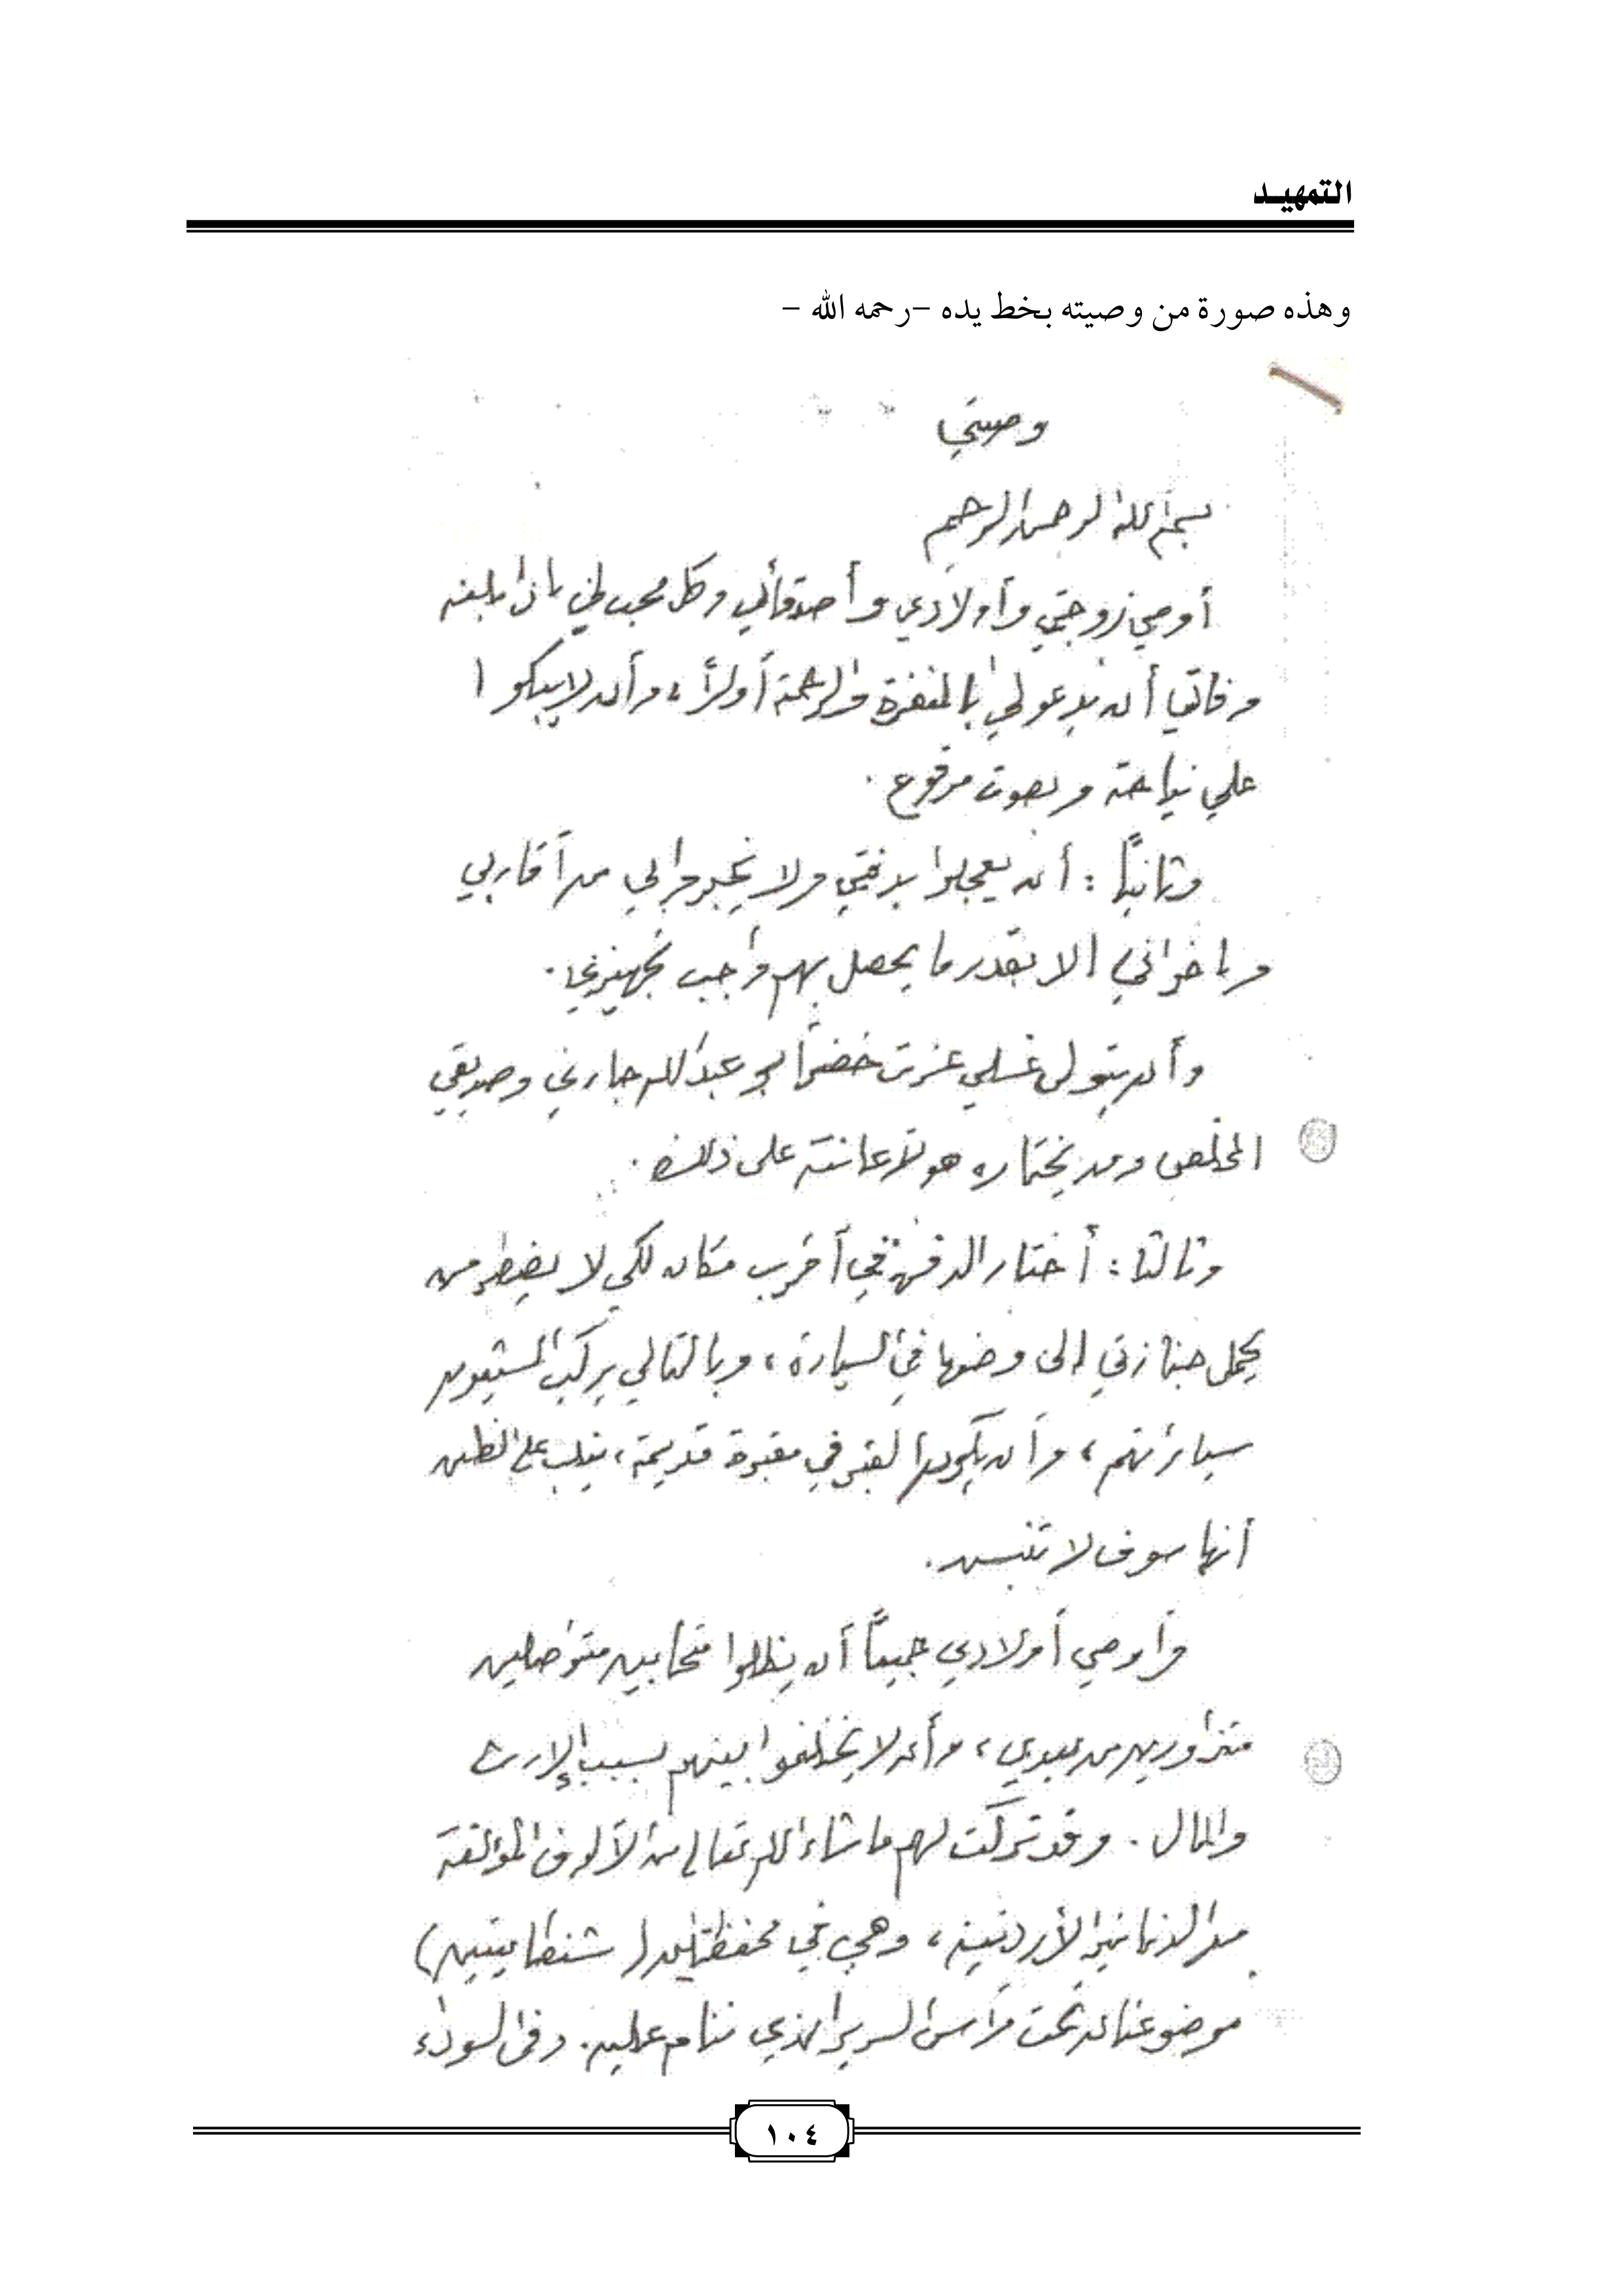 التمهيـد
وهذه صورة من وصيته بخط يده -رحمه الله -
وصيتي
بسم الله الرحمن الرحيم
أوصي زوجتي وأولادي وأصدقائي وكل محب لي إذا بلغه
وفاتي أن يدعو لي بالمغفرة والرحمة أولاً، وأن لا يبكوا
علي نياحة وبصوت مرفوع.
وثانياً : أن يعجلوا بدفني ولا يخبروا لي من أقاربي
وإخواني إلا بقدر ما يحصل بهم واجب تجهيزي.
وأن يتولى غسلي عزت خضر أبو عبد الله جاري وصديقي
المخلص ومن يختاره هو لإعانته على ذلك.
وثالثا : أختار الدفن في أقرب مكان لكي لا يضطر من
يحمل جنازتي إلى وضعها في السيارة، وبالتالي يركب المشيعون
سياراتهم، وأن يكون القبر في مقبرة قديمة، يغلب على الظن
أنها سوف لا تنبش.
وأوصي أولادي جميعاً أن يظلوا متحابين متواصلين
متزاورين من بعدي، وأن لا يختلفوا بينهم بسبب الإرث
والمال. وقد تركت لهم ما شاء الله تعالى من الألوف المؤلفة
من الدنانير الأردنية، وهي في محفظتين (شنطايتين)
موضوعتان تحت رأس السرير الذي ننام عليه. وفي السوداء
١٠٤